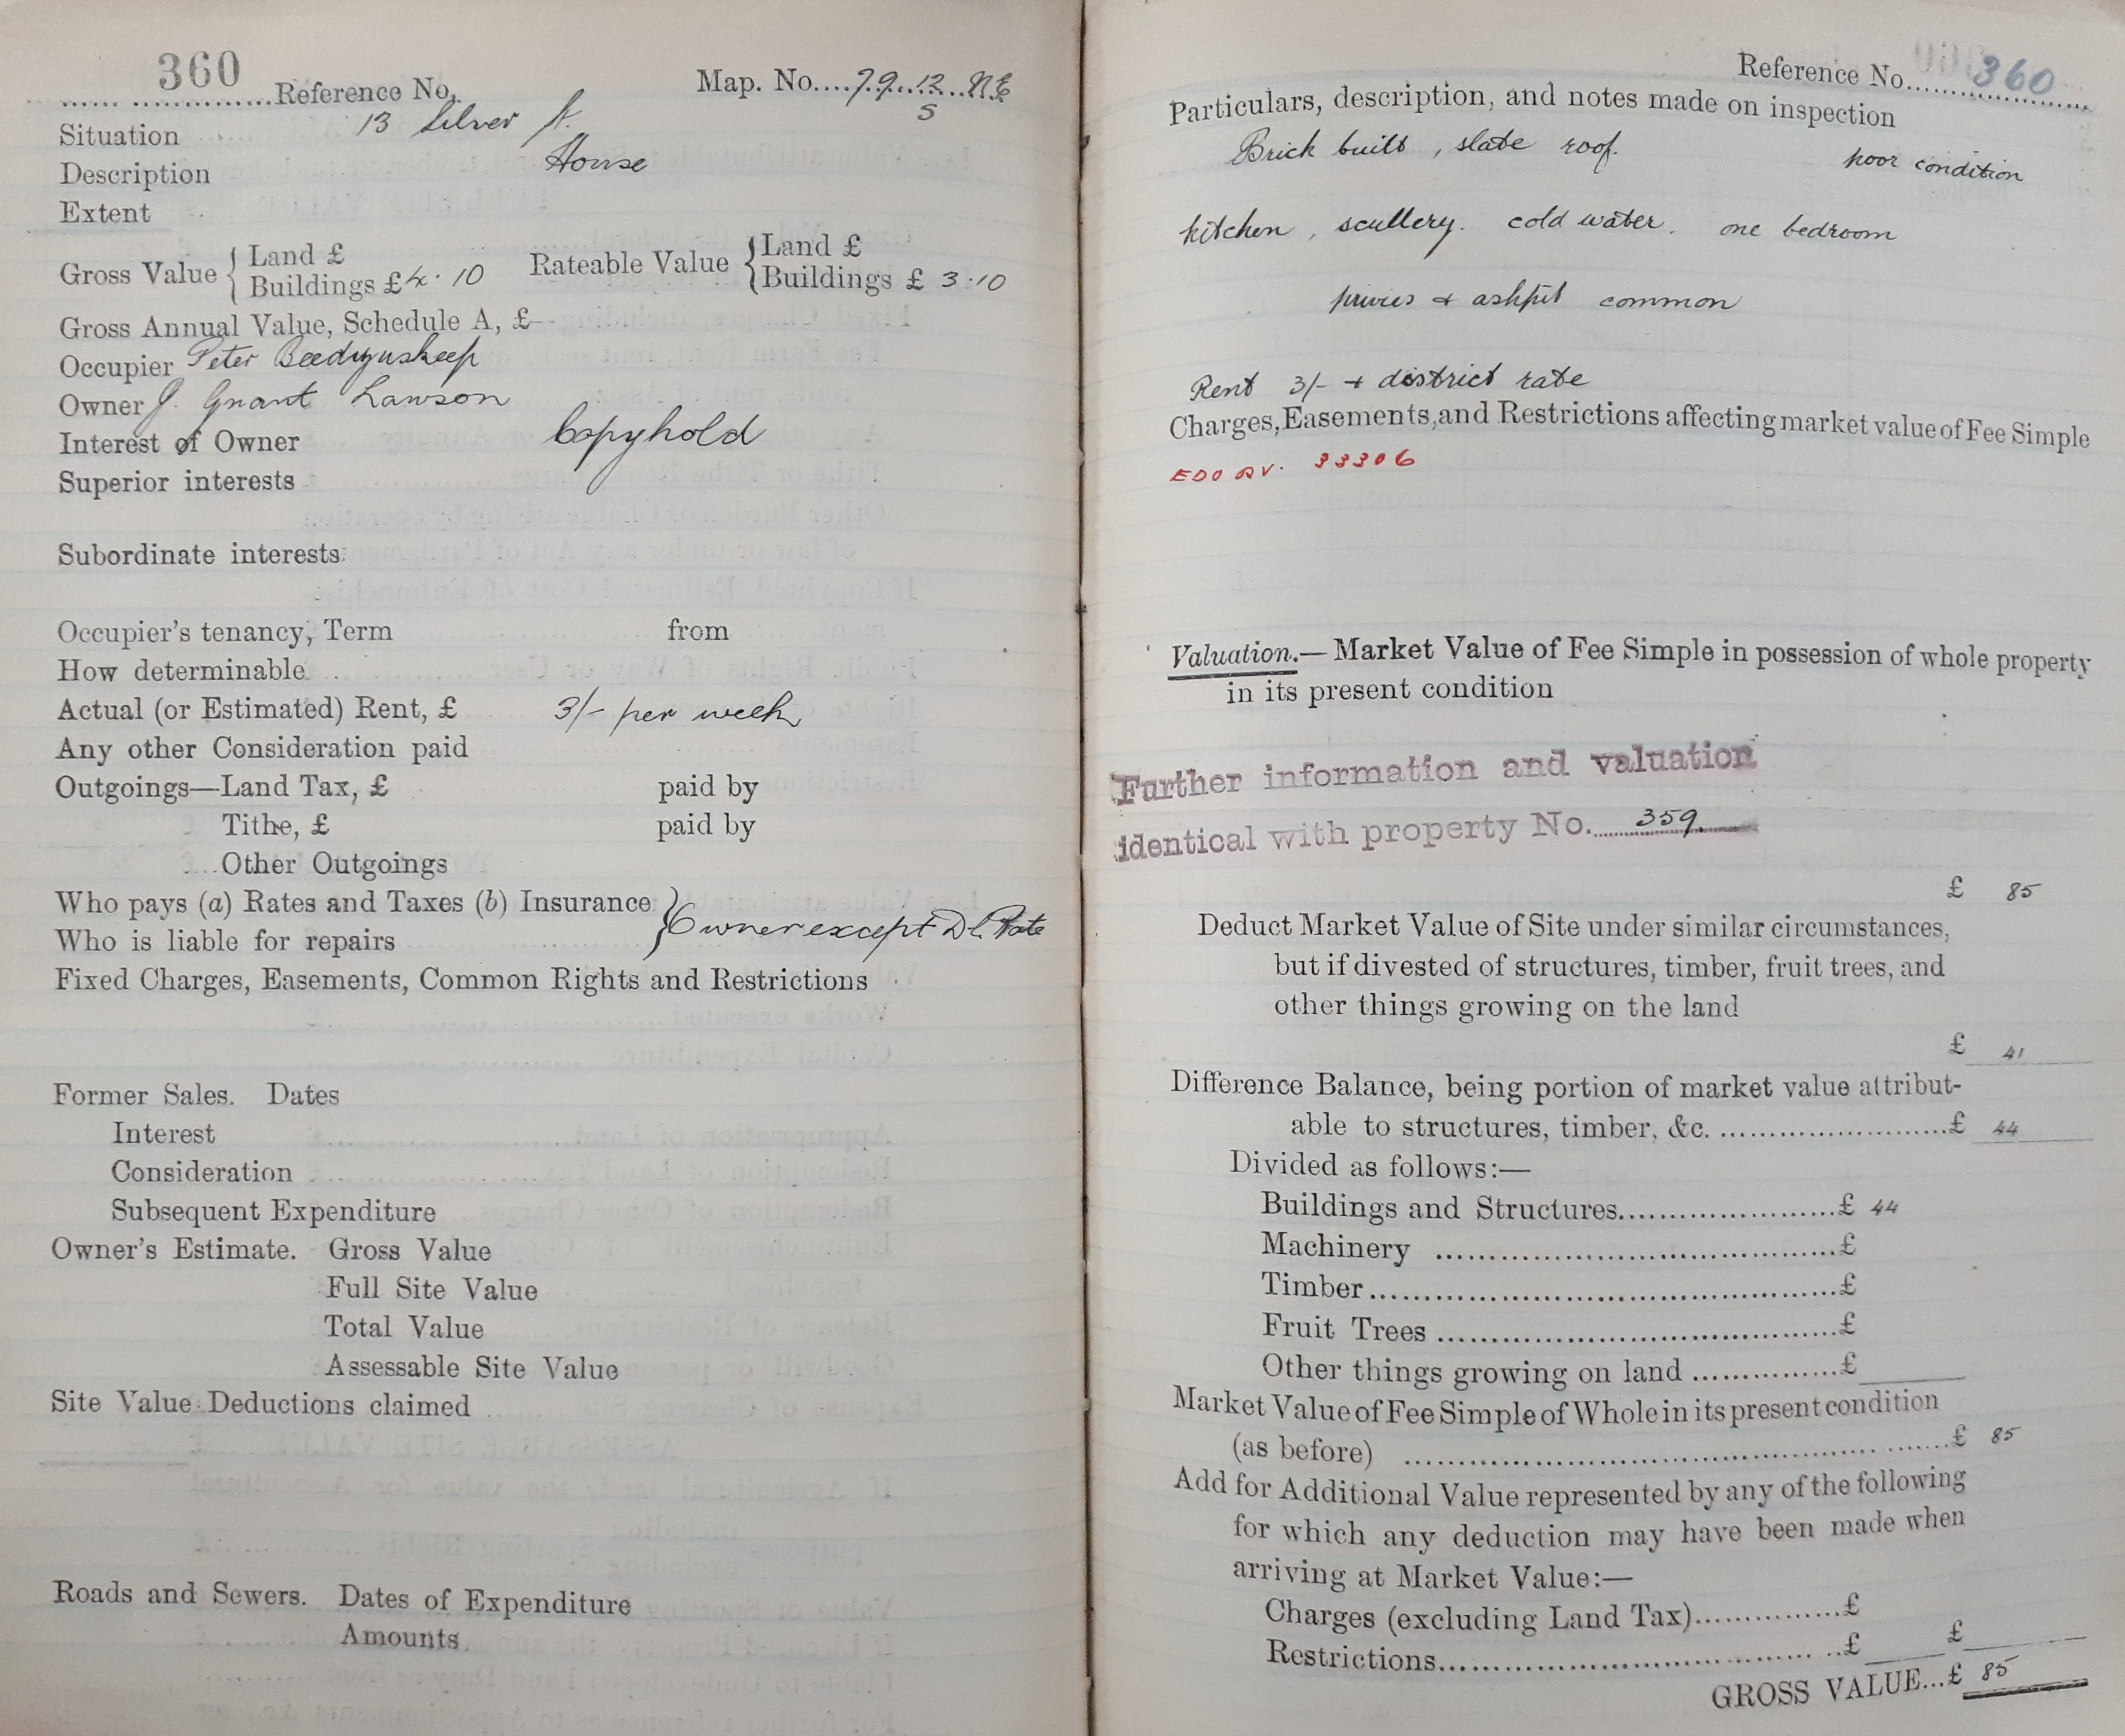 360 Reference No. Map. No. 79.12 NE
S
Situation 13 Silver St.
Description House
Extent
Gross Value { Land £
Buildings £ 4.10
Rateable Value { Land £
Buildings £ 3:10
Gross Annual Value, Schedule A, £
Occupier Peter
Owner J. Grant Lawson
Interest of Owner Copyhold
Superior interests
Subordinate interests
Occupier's tenancy, Term from
How determinable
Actual (or Estimated) Rent, £ 3/- per week
Any other Consideration paid
Outgoings—Land Tax, £ paid by
Tithe, £ paid by
Other Outgoings
Who pays (a) Rates and Taxes (b) Insurance
Who is liable for repairs } Owner except Dt. Rate
Fixed Charges, Easements, Common Rights and Restrictions
Former Sales. Dates
Interest
Consideration
Subsequent Expenditure
Owner's Estimate. Gross Value
Full Site Value
Total Value
Assessable Site Value
Site Value Deductions claimed
Roads and Sewers. Dates of Expenditure
Amounts
Reference No. 360
Particulars, description, and notes made on inspection
Brick built, slate roof. poor condition
kitchen, scullery. cold water. one bedroom
privies + ashpit common
Rent 3/- + district rate
Charges, Easements, and Restrictions affecting market value of Fee Simple
33306
Valuation.—Market Value of Fee Simple in possession of whole property
in its present condition
Further information and valuation
identical with property No. 359.
£ 85
Deduct Market Value of Site under similar circumstances,
but if divested of structures, timber, fruit trees, and
other things growing on the land
£ 41
Difference Balance, being portion of market value attribut-
able to structures, timber, &c. £ 44
Divided as follows:—
Buildings and Structures £ 44
Machinery £
Timber £
Fruit Trees £
Other things growing on land £
Market Value of Fee Simple of Whole in its present condition
(as before) £ 85
Add for Additional Value represented by any of the following
for which any deduction may have been made when
arriving at Market Value:—
Charges (excluding Land Tax) £
Restrictions £ £
GROSS VALUE...£ 85